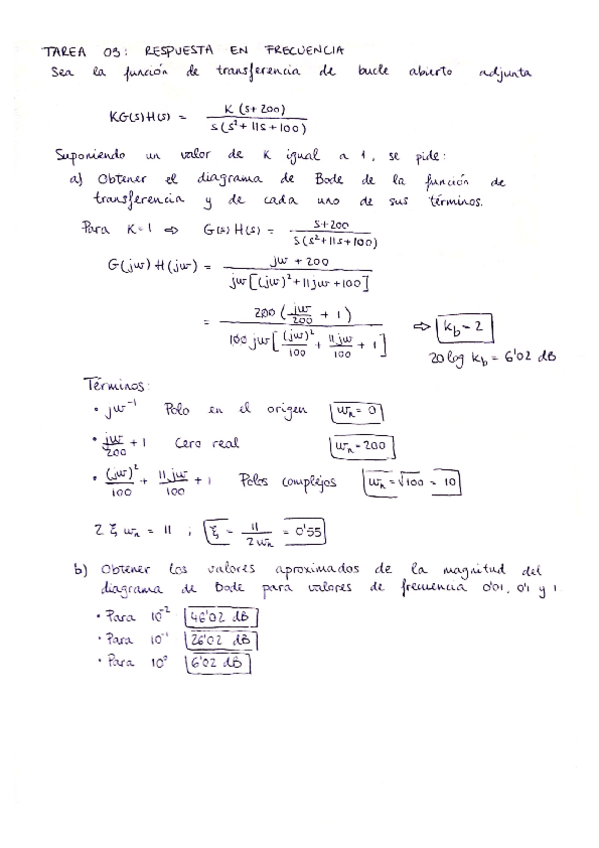 TAREA 03: RESPUESTA EN FRECUENCIA
Sea la función de transferencia de bucle abierto adjunta
KG(s)H(s) = K (s+200) / s(s²+11s+100)
Suponiendo un valor de K igual a 1, se pide:
a) Obtener el diagrama de Bode de la función de
transferencia y de cada uno de sus términos.
Para K=1 ⇒ G(s)H(s) = s+200 / s(s²+11s+100)
G(jw)H(jw) = jw + 200 / jw[(jw)²+11jw+100]
= 200 (jw/200 + 1) / 100 jw [(jw)²/100 + 11jw/100 + 1] ⇒ Kb = 2
20 log Kb = 6'02 dB
Términos:
• jw⁻¹ Polo en el origen wn = 0
• jw/200 + 1 Cero real wn = 200
• (jw)²/100 + 11jw/100 + 1 Polos complejos wn = √100 = 10
2 ξ wn = 11 ; ξ = 11/2wn = 0'55
b) Obtener los valores aproximados de la magnitud del
diagrama de Bode para valores de frecuencia 0'01, 0'1 y 1.
• Para 10⁻² 46'02 dB
• Para 10⁻¹ 26'02 dB
• Para 10⁰ 6'02 dB